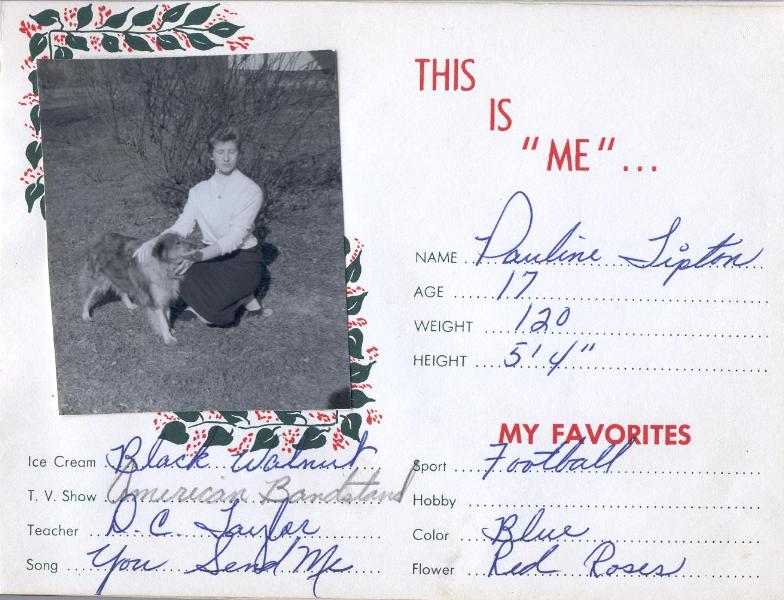 THIS
IS
"ME"...
NAME Pauline Lipton
AGE 17
WEIGHT 120
HEIGHT 5' 4"
MY FAVORITES
Ice Cream Black Walnut
T. V. Show American Bandstand
Teacher D. C. Taylor
Song You Send Me
Sport Football
Hobby
Color Blue
Flower Red Roses